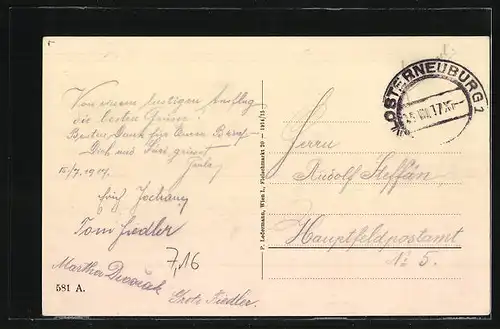 Von einem lustigen Ausflug
die besten Grüsse!
Besten Dank für Deinen Brief
Dich und Turi grüsst
15/7. 1917.
Erich Jochany
Toni Fiedler
7,16
Martha Dvorak
Grete Fiedler.
581 A.
P. Ledermann, Wien I., Fleischmarkt 20 - 1914/15
KLOSTERNEUBURG 1
15.VII.17
Herrn
Rudolf Steffan,
Hauptfeldpostamt
No 5.